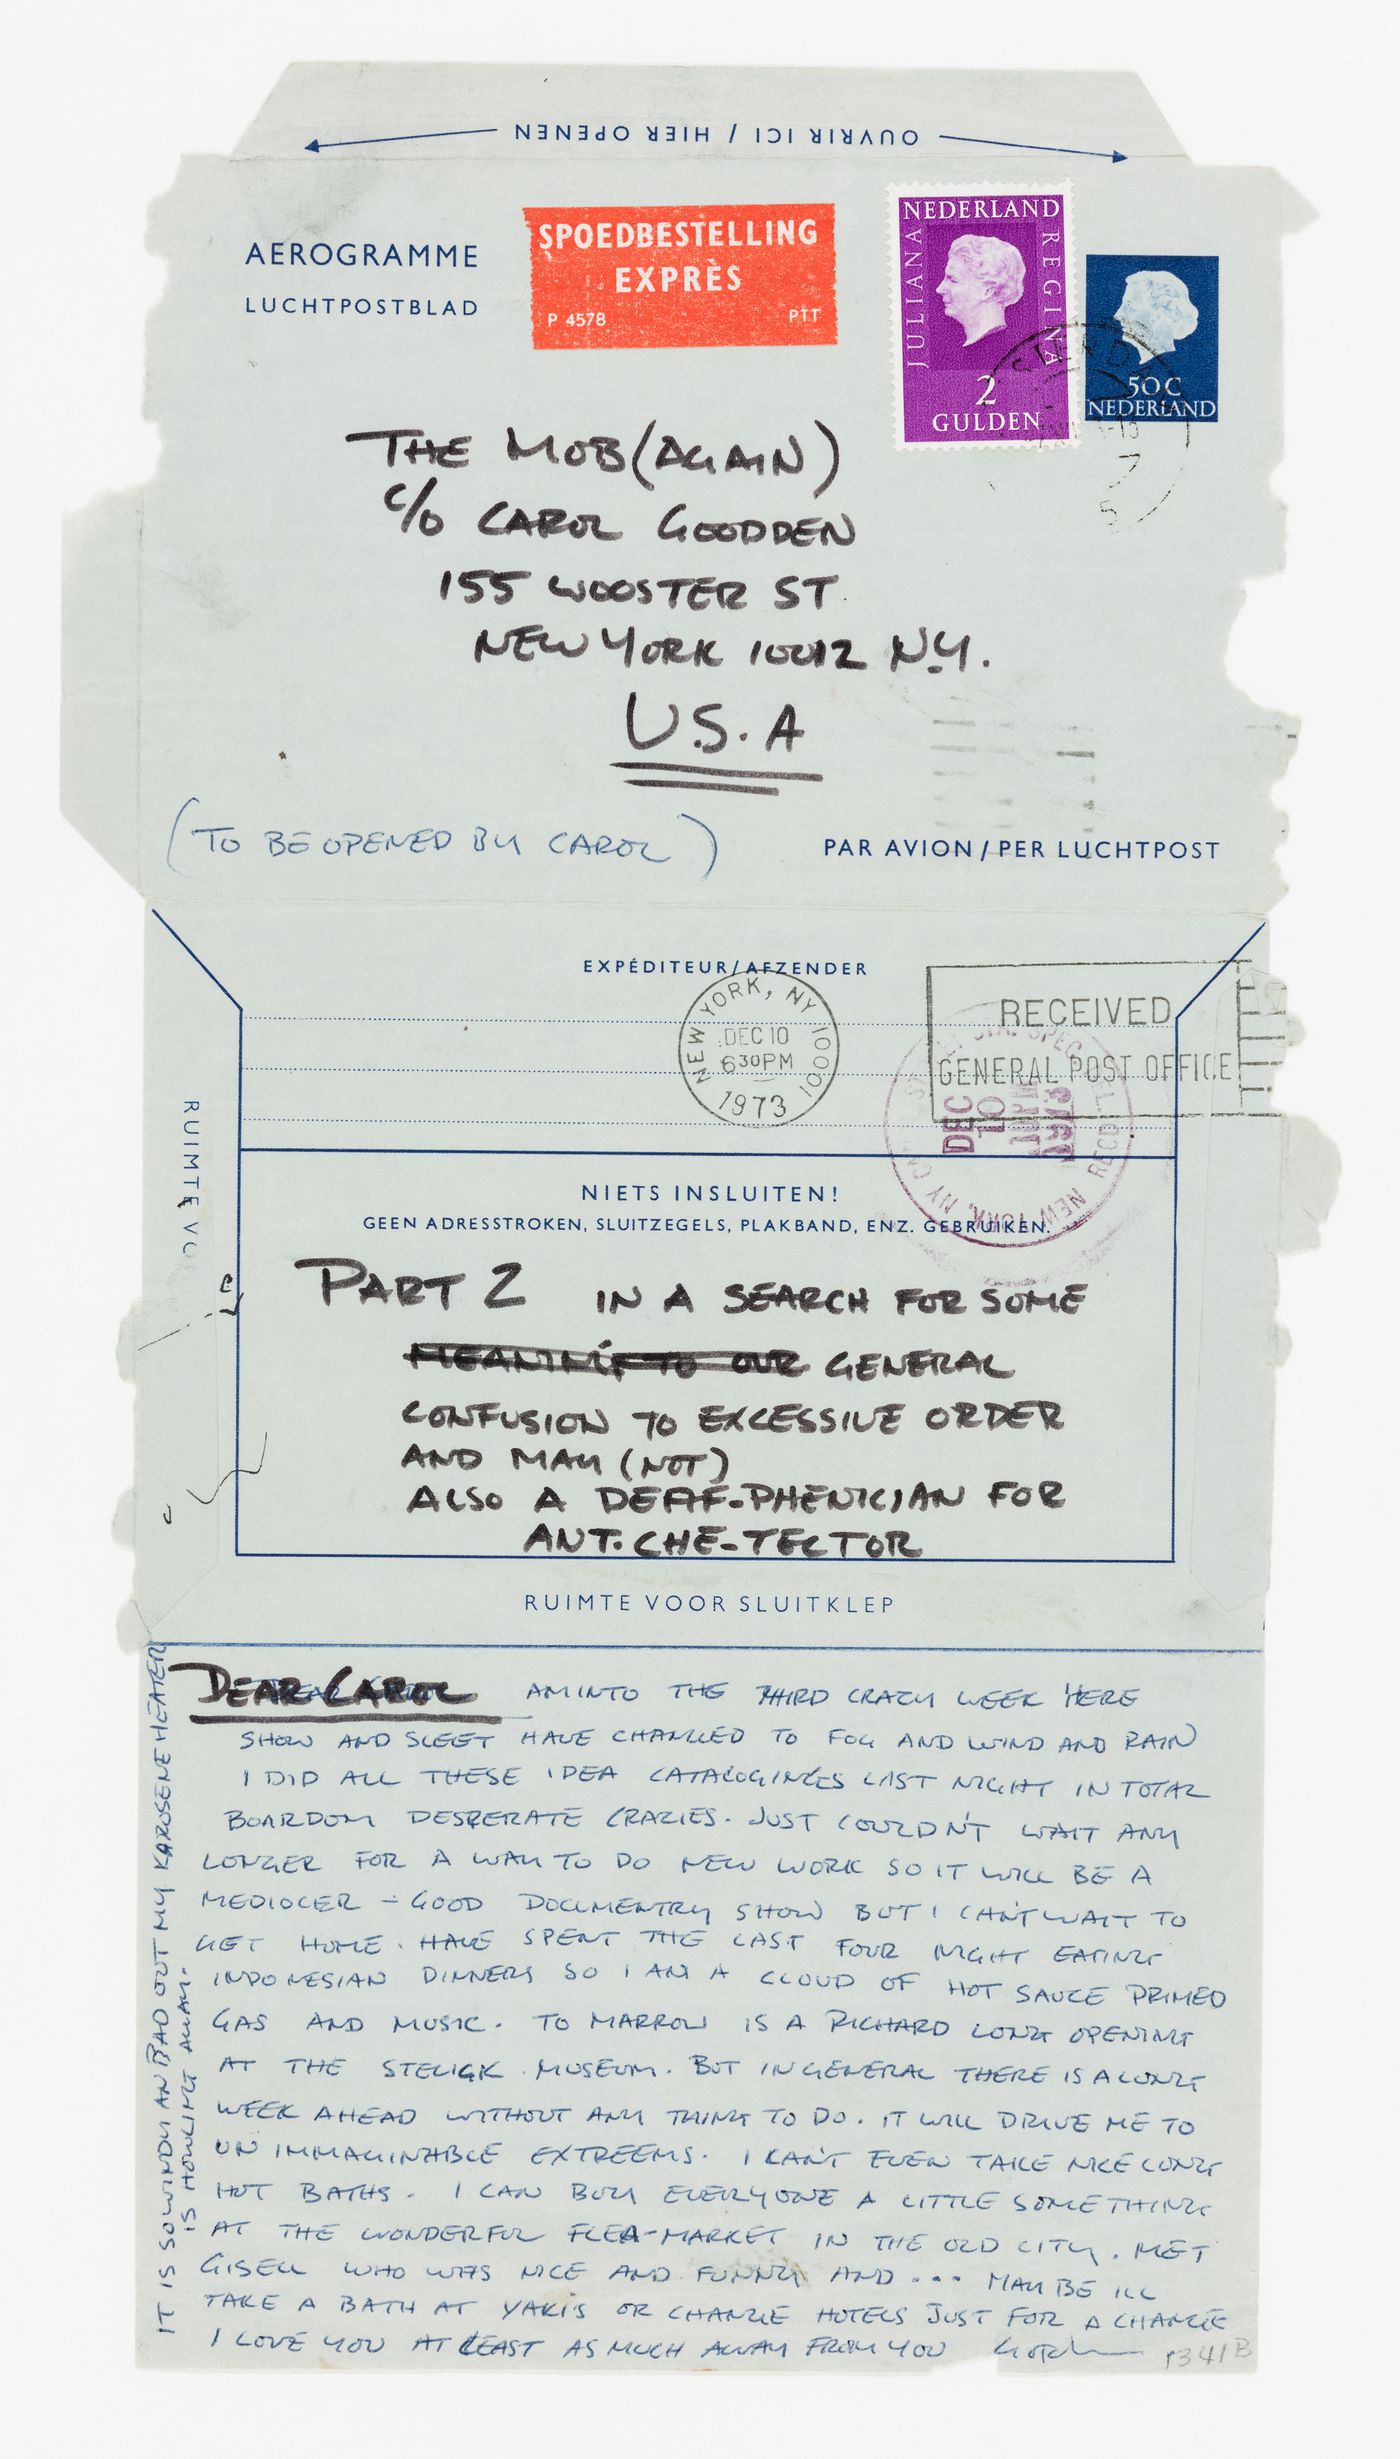 OUVRIR ICI / HIER OPENEN
AEROGRAMME
LUCHTPOSTBLAD
SPOEDBESTELLING
EXPRÈS
P 4578 PTT
NEDERLAND
JULIANA REGINA
2
GULDEN
50 C
NEDERLAND
THE MOB (AGAIN)
C/O CAROL GOODDEN
155 WOOSTER ST
NEW YORK 10012 N.Y.
U.S.A
(TO BE OPENED BY CAROL)
PAR AVION / PER LUCHTPOST
EXPÉDITEUR/AFZENDER
NEW YORK, NY 10001
DEC 10
630PM
1973
RECEIVED
GENERAL POST OFFICE
DEC
10
NEW YORK, NY
NIETS INSLUITEN!
GEEN ADRESSTROKEN, SLUITZEGELS, PLAKBAND, ENZ. GEBRUIKEN.
RUIMTE VO
PART 2 IN A SEARCH FOR SOME
GENERAL
CONFUSION TO EXCESSIVE ORDER
AND MAY (NOT)
ALSO A DEAF-PHENICIAN FOR
ANT.CHE-TECTOR
RUIMTE VOOR SLUITKLEP
DEAR CAROL AM INTO THE THIRD CRAZY WEEK HERE
SNOW AND SLEET HAVE CHANGED TO FOG AND WIND AND RAIN
I DID ALL THESE IDEA CATALOGINGS LAST NIGHT IN TOTAL
BOARDOM DESPERATE CRAZIES. JUST COULDN'T WAIT ANY
LONGER FOR A WAY TO DO NEW WORK SO IT WILL BE A
MEDIOCER - GOOD DOCUMENTRY SHOW BUT I CAN'T WAIT TO
GET HOME. HAVE SPENT THE LAST FOUR NIGHT EATING
INDONESIAN DINNERS SO I AM A CLOUD OF HOT SAUCE PRIMED
GAS AND MUSIC. TO MARROW IS A RICHARD LONG OPENING
AT THE STELIGK MUSEUM. BUT IN GENERAL THERE IS A LONG
WEEK AHEAD WITHOUT ANY THING TO DO. IT WILL DRIVE ME TO
UN IMMAGINABLE EXTREEMS. I CAN'T EVEN TAKE NICE LONG
HOT BATHS. I CAN BUY EVERYONE A LITTLE SOMETHING
AT THE WONDERFUL FLEA-MARKET IN THE OLD CITY. MET
GISELL WHO WAS NICE AND FUNNY AND... MAYBE ILL
TAKE A BATH AT YAKIS OR CHANGE HOTELS JUST FOR A CHANGE
I LOVE YOU AT LEAST AS MUCH AWAY FROM YOU
1341B
IT IS SO WINDY AN BAD OUT MY KAROSENE HEATER
IS HOWLING AWAY.